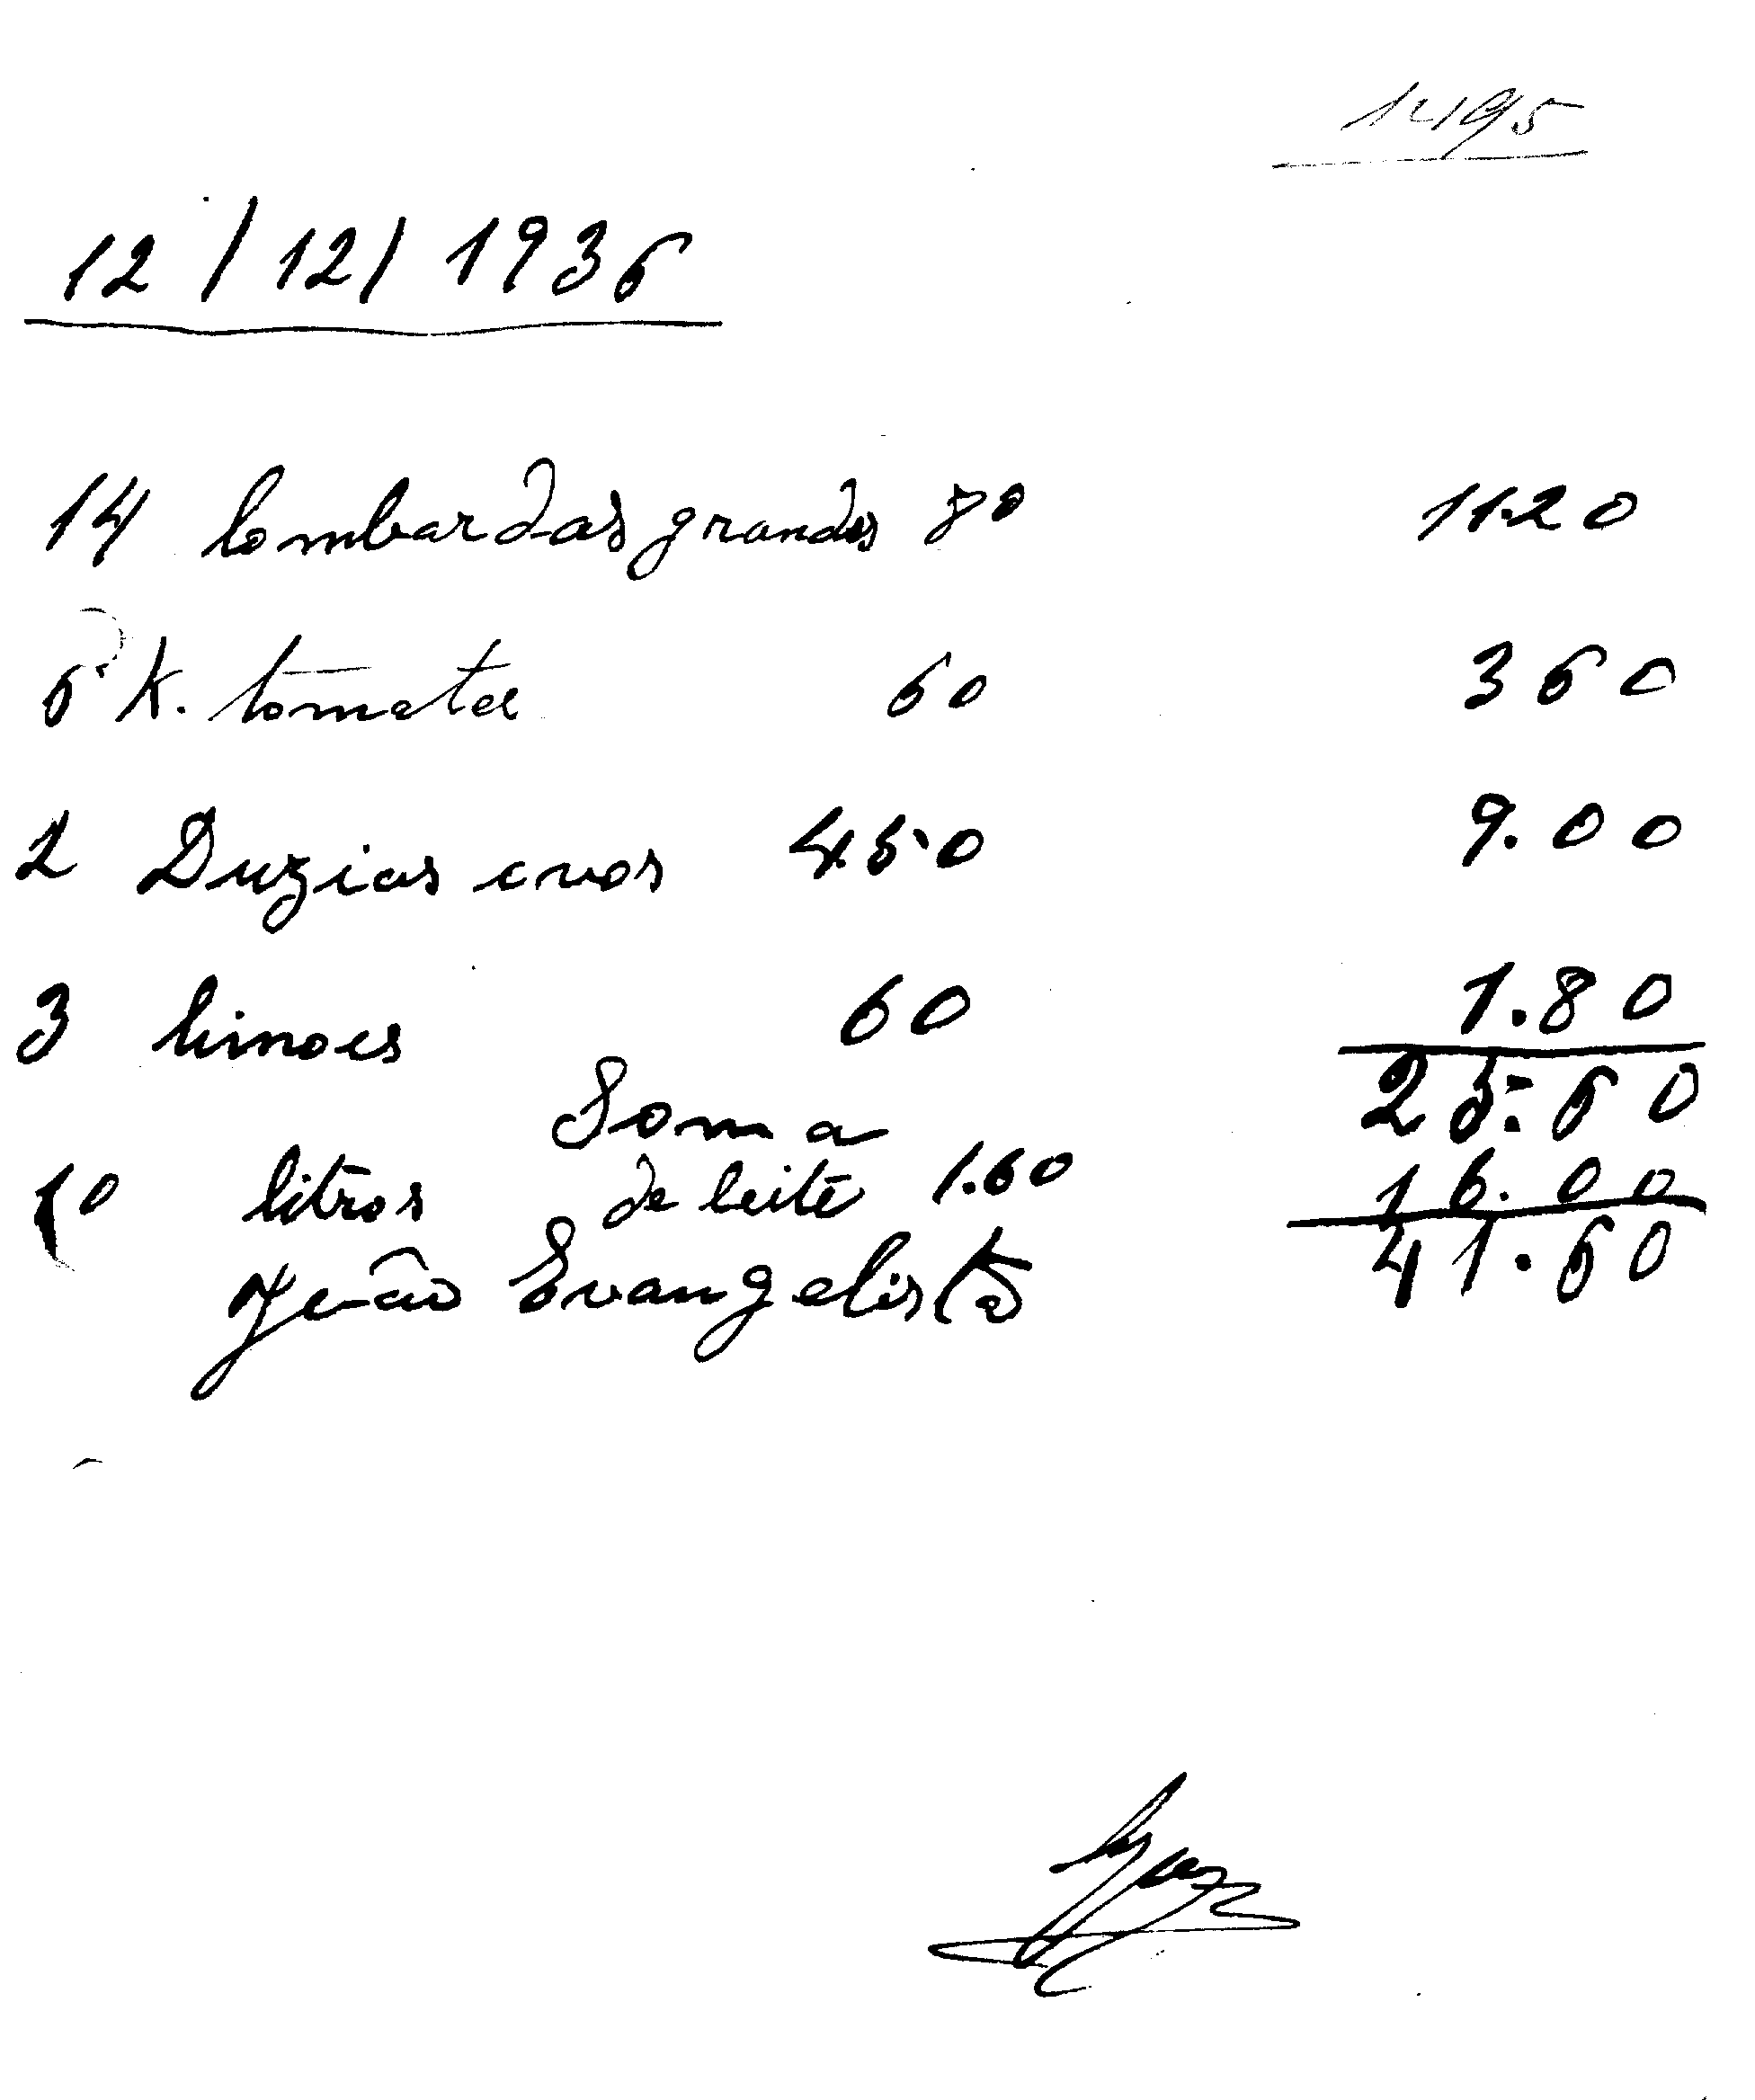 1495
12/12/1936
14 lombardas grandes 80 11.20
6 K. tomates 60 360
2 Duzias ovos 450 9.00
3 limoes 60 1.80
Soma 25.60
10 litros de leite 1.60 16.00
João Evangelista 41.60